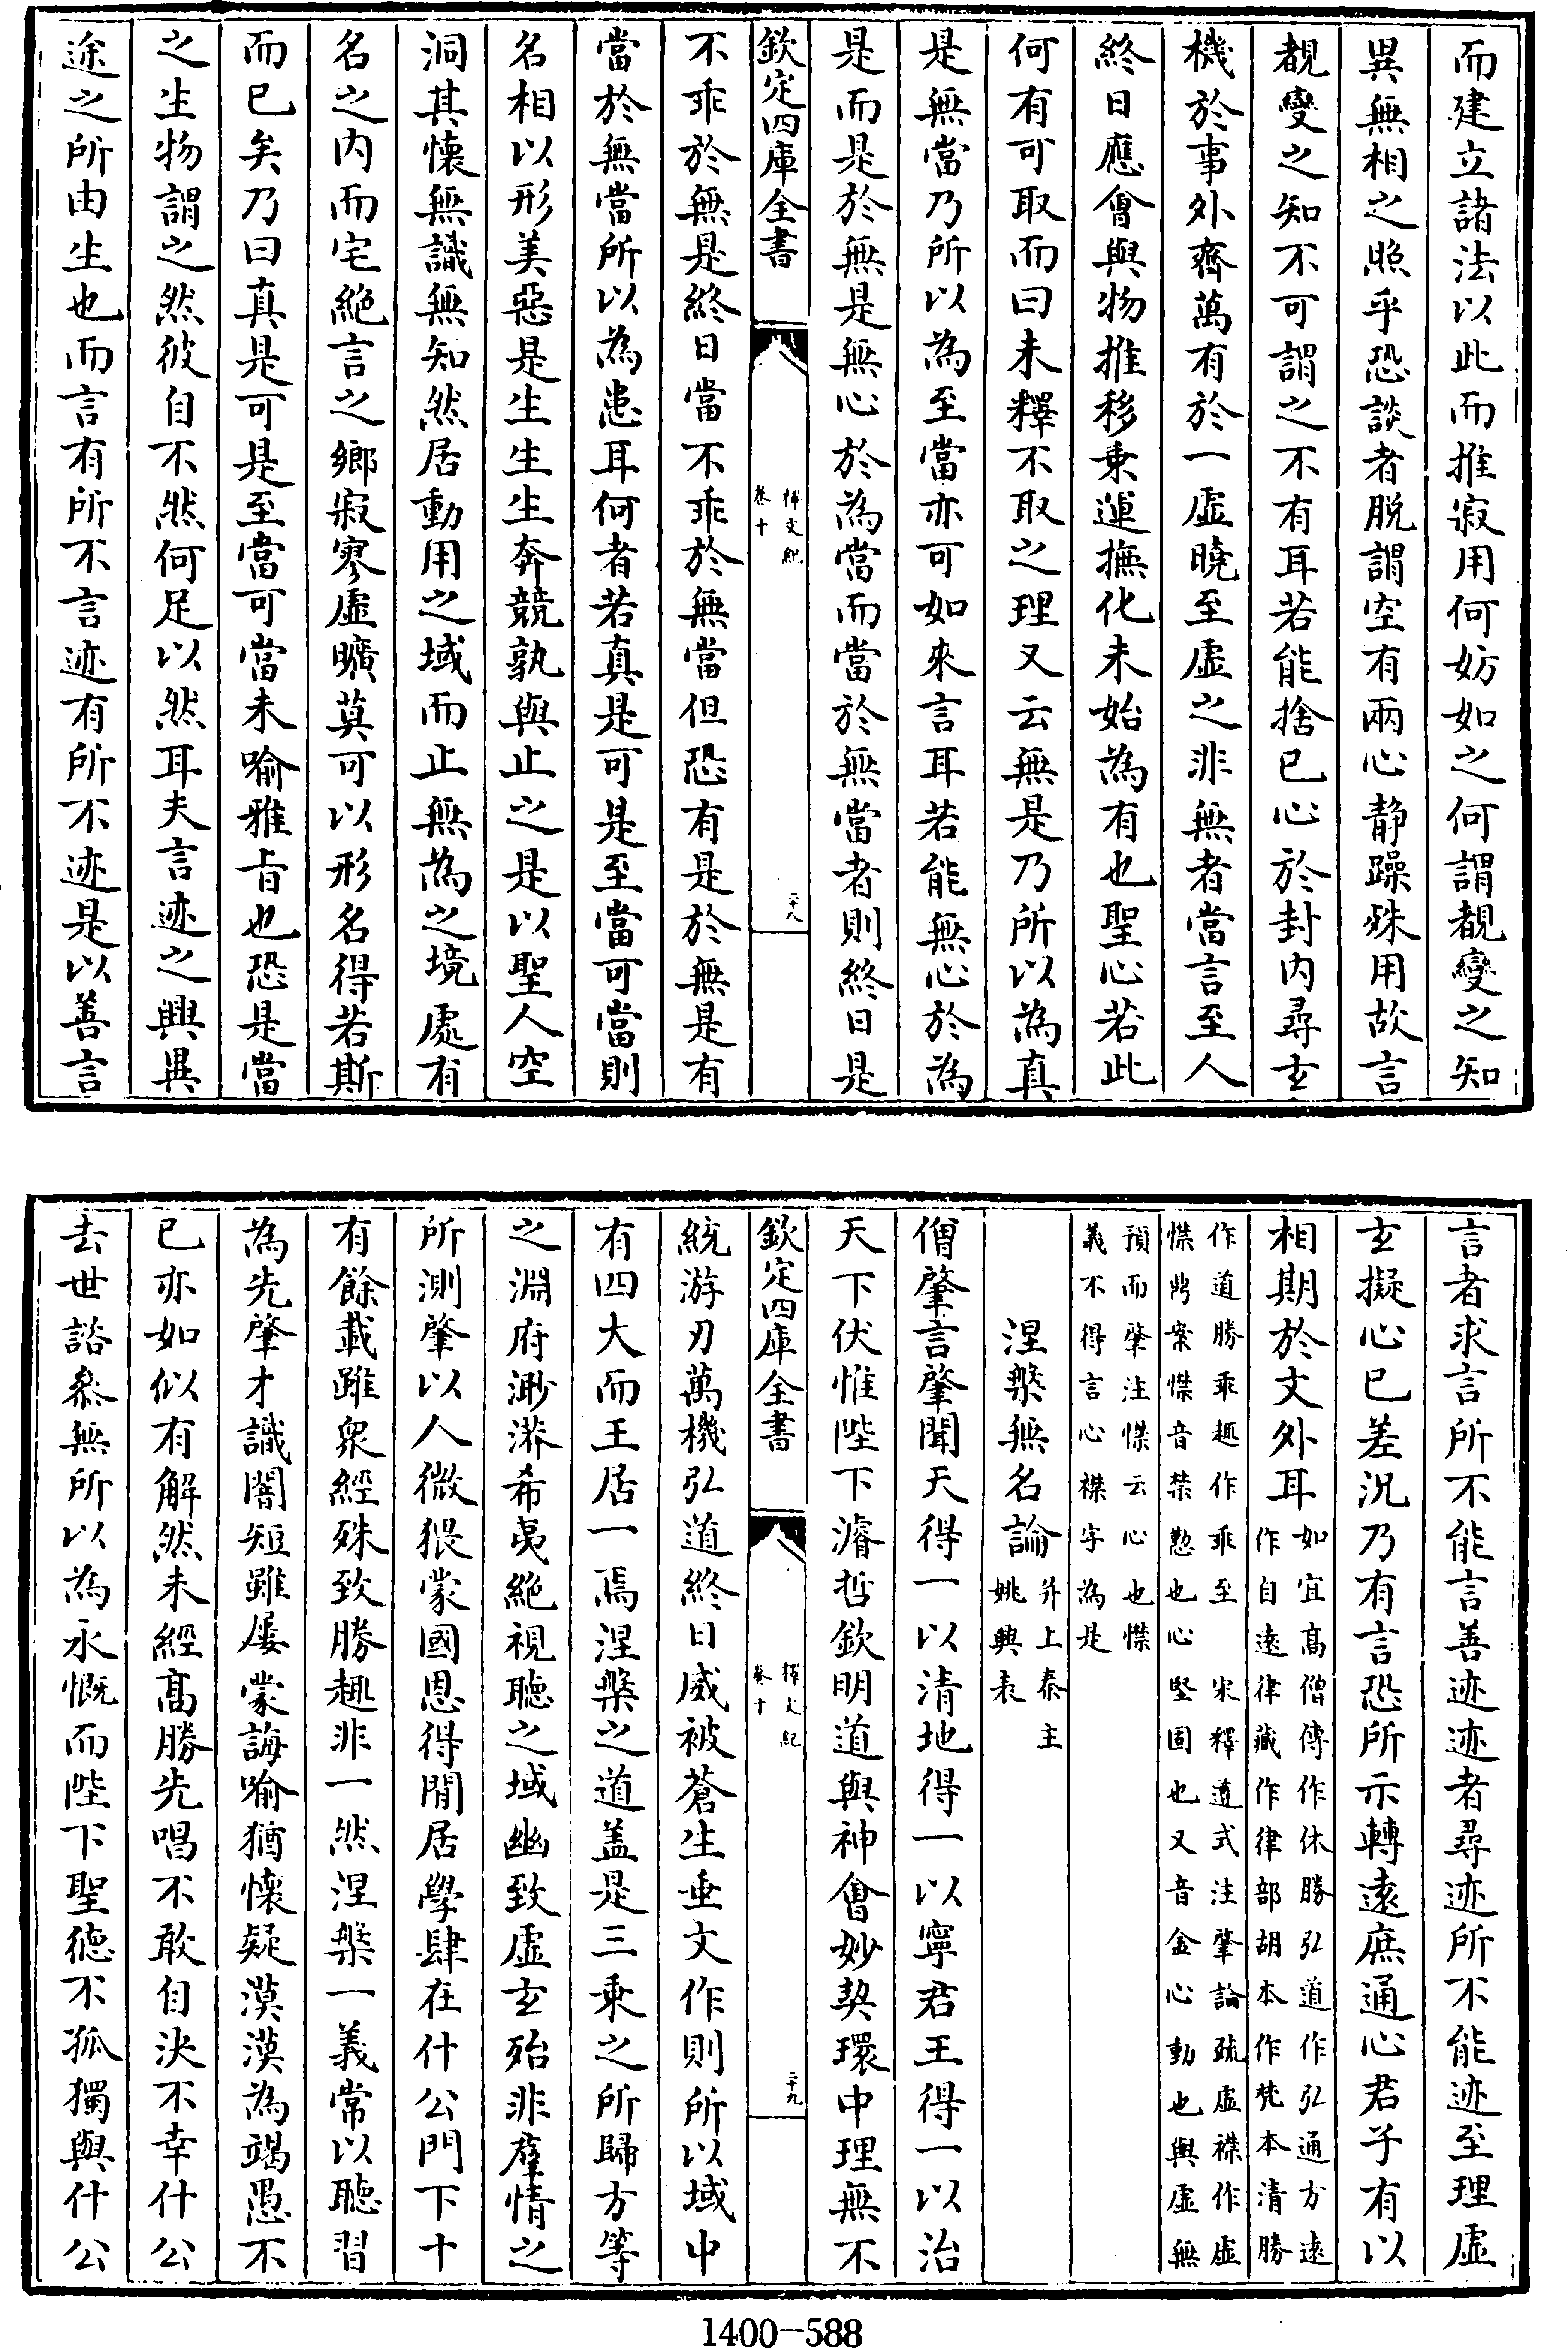 而建立諸法以此而推寂用何妨如之何謂覩變之知
異無相之照乎恐談者脫謂空有兩心静躁殊用故言
覩變之知不可謂之不有耳若能捨已心於封内尋玄
機於事外齊萬有於一虛曉至虛之非無者當言至人
終日應會與物推移乗運撫化未始為有也聖心若此
何有可取而曰未釋不取之理又云無是乃所以為真
是無當乃所以為至當亦可如來言耳若能無心於為
是而是於無是無心於為當而當於無當者則終日是
欽定四庫全書
釋文紀
卷十
二十八
不乖於無是終日當不乖於無當但恐有是於無是有
當於無當所以為患耳何者若真是可是至當可當則
名相以形美惡是生生生奔競孰與止之是以聖人空
洞其懐無識無知然居動用之域而止無為之境處有
名之内而宅絶言之鄉寂寥虛曠莫可以形名得若斯
而已矣乃曰真是可是至當可當未喻雅㫖也恐是當
之生物謂之然彼自不然何足以然耳夫言迹之興異
途之所由生也而言有所不言迹有所不迹是以善言
言者求言所不能言善迹迹者尋迹所不能迹至理虛
玄擬心已差況乃有言恐所示轉逺庶通心君子有以
相期於文外耳
如宜髙僧傳作休勝弘道作弘通方逺
作自逺律藏作律部胡本作梵本清勝
作道勝乖趣作乖至　宋釋遵式注肇論疏虛襟作虛
惵鳥案惵音禁懃也心堅固也又音金心動也與虛無
預而肇注惵云心也惵
義不得言心襟字為是
涅槃無名論
并上秦主
姚興表
僧肇言肇聞天得一以清地得一以寧君王得一以治
天下伏惟陛下濬哲欽明道與神會妙契環中理無不
欽定四庫全書
釋文紀
卷十
二十九
統游刃萬機弘道終日威被蒼生垂文作則所以域中
有四大而王居一焉涅槃之道盖是三乗之所歸方等
之淵府渺漭希夷絶視聽之域幽致虛玄殆非羣情之
所測肇以人微猥蒙國恩得閒居學肆在什公門下十
有餘載雖衆經殊致勝趣非一然涅槃一義常以聽習
為先肇才識闇短雖屢蒙誨喻猶懐疑漠漠為竭愚不
已亦如似有解然未經髙勝先唱不敢自決不幸什公
去世諮叅無所以為永慨而陛下聖徳不孤獨與什公
1400—588